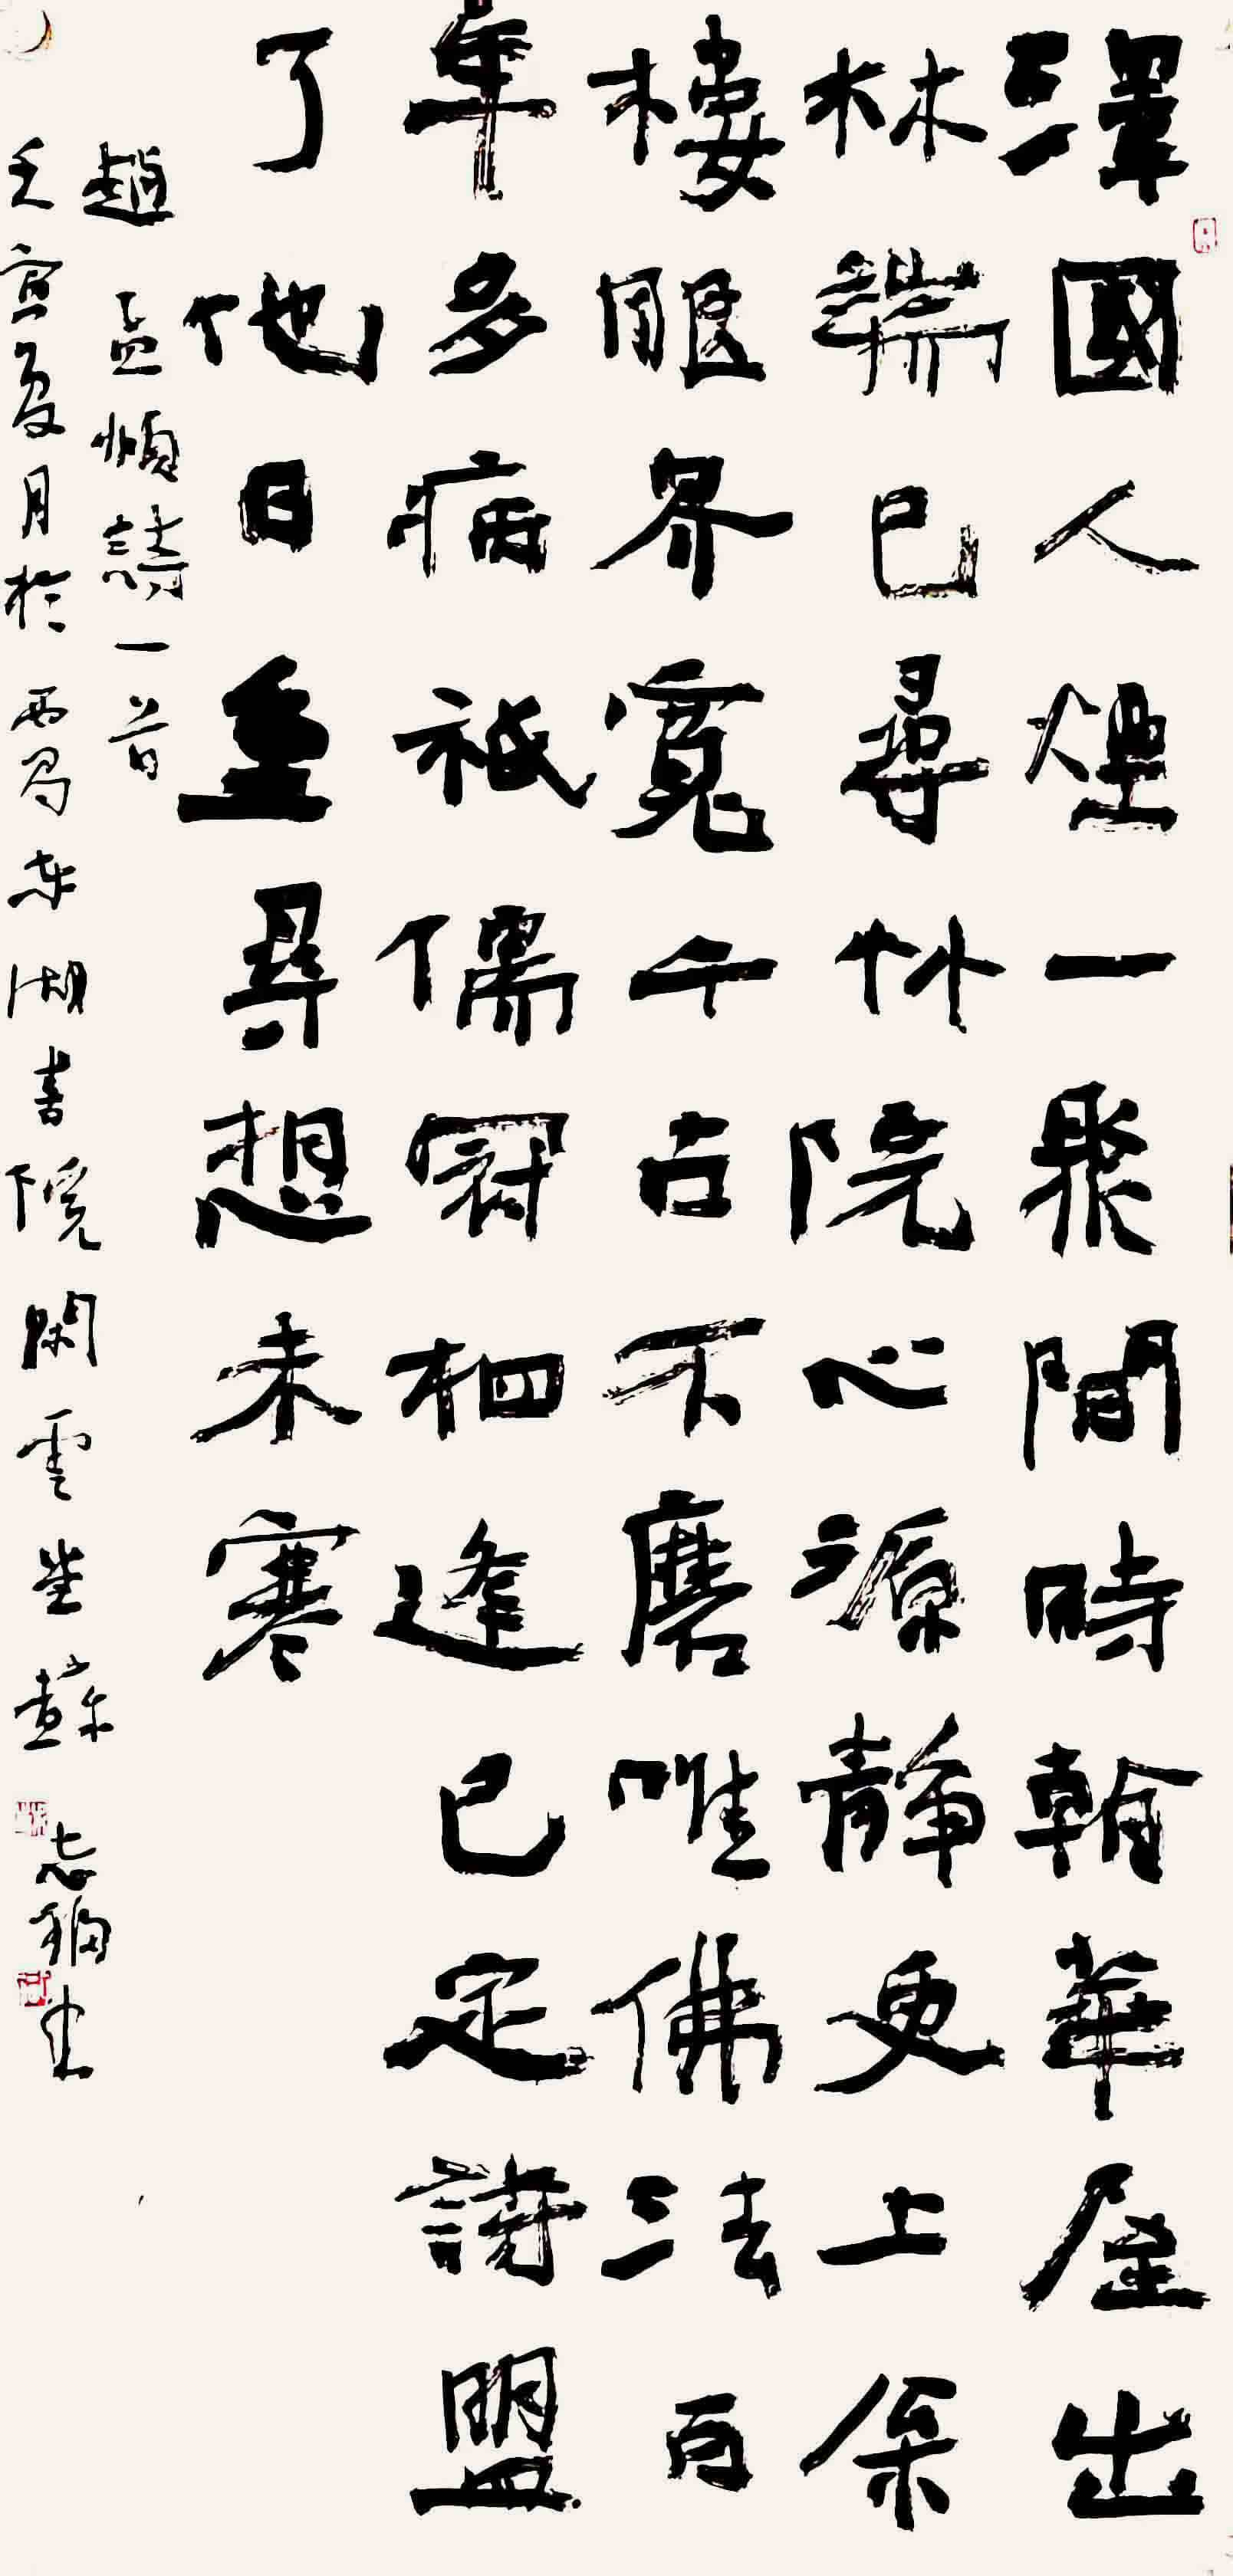 澤國人煙一聚間時翰華屋出
林端已尋竹院心源靜更上余
樓眼界寬千古不磨唯佛法百
年多病祇儒冠相逢已定詩盟
了他日重尋想未寒
趙孟頫詩一首
壬寅夏月於西蜀東湖書院閑雲堂蘇志書